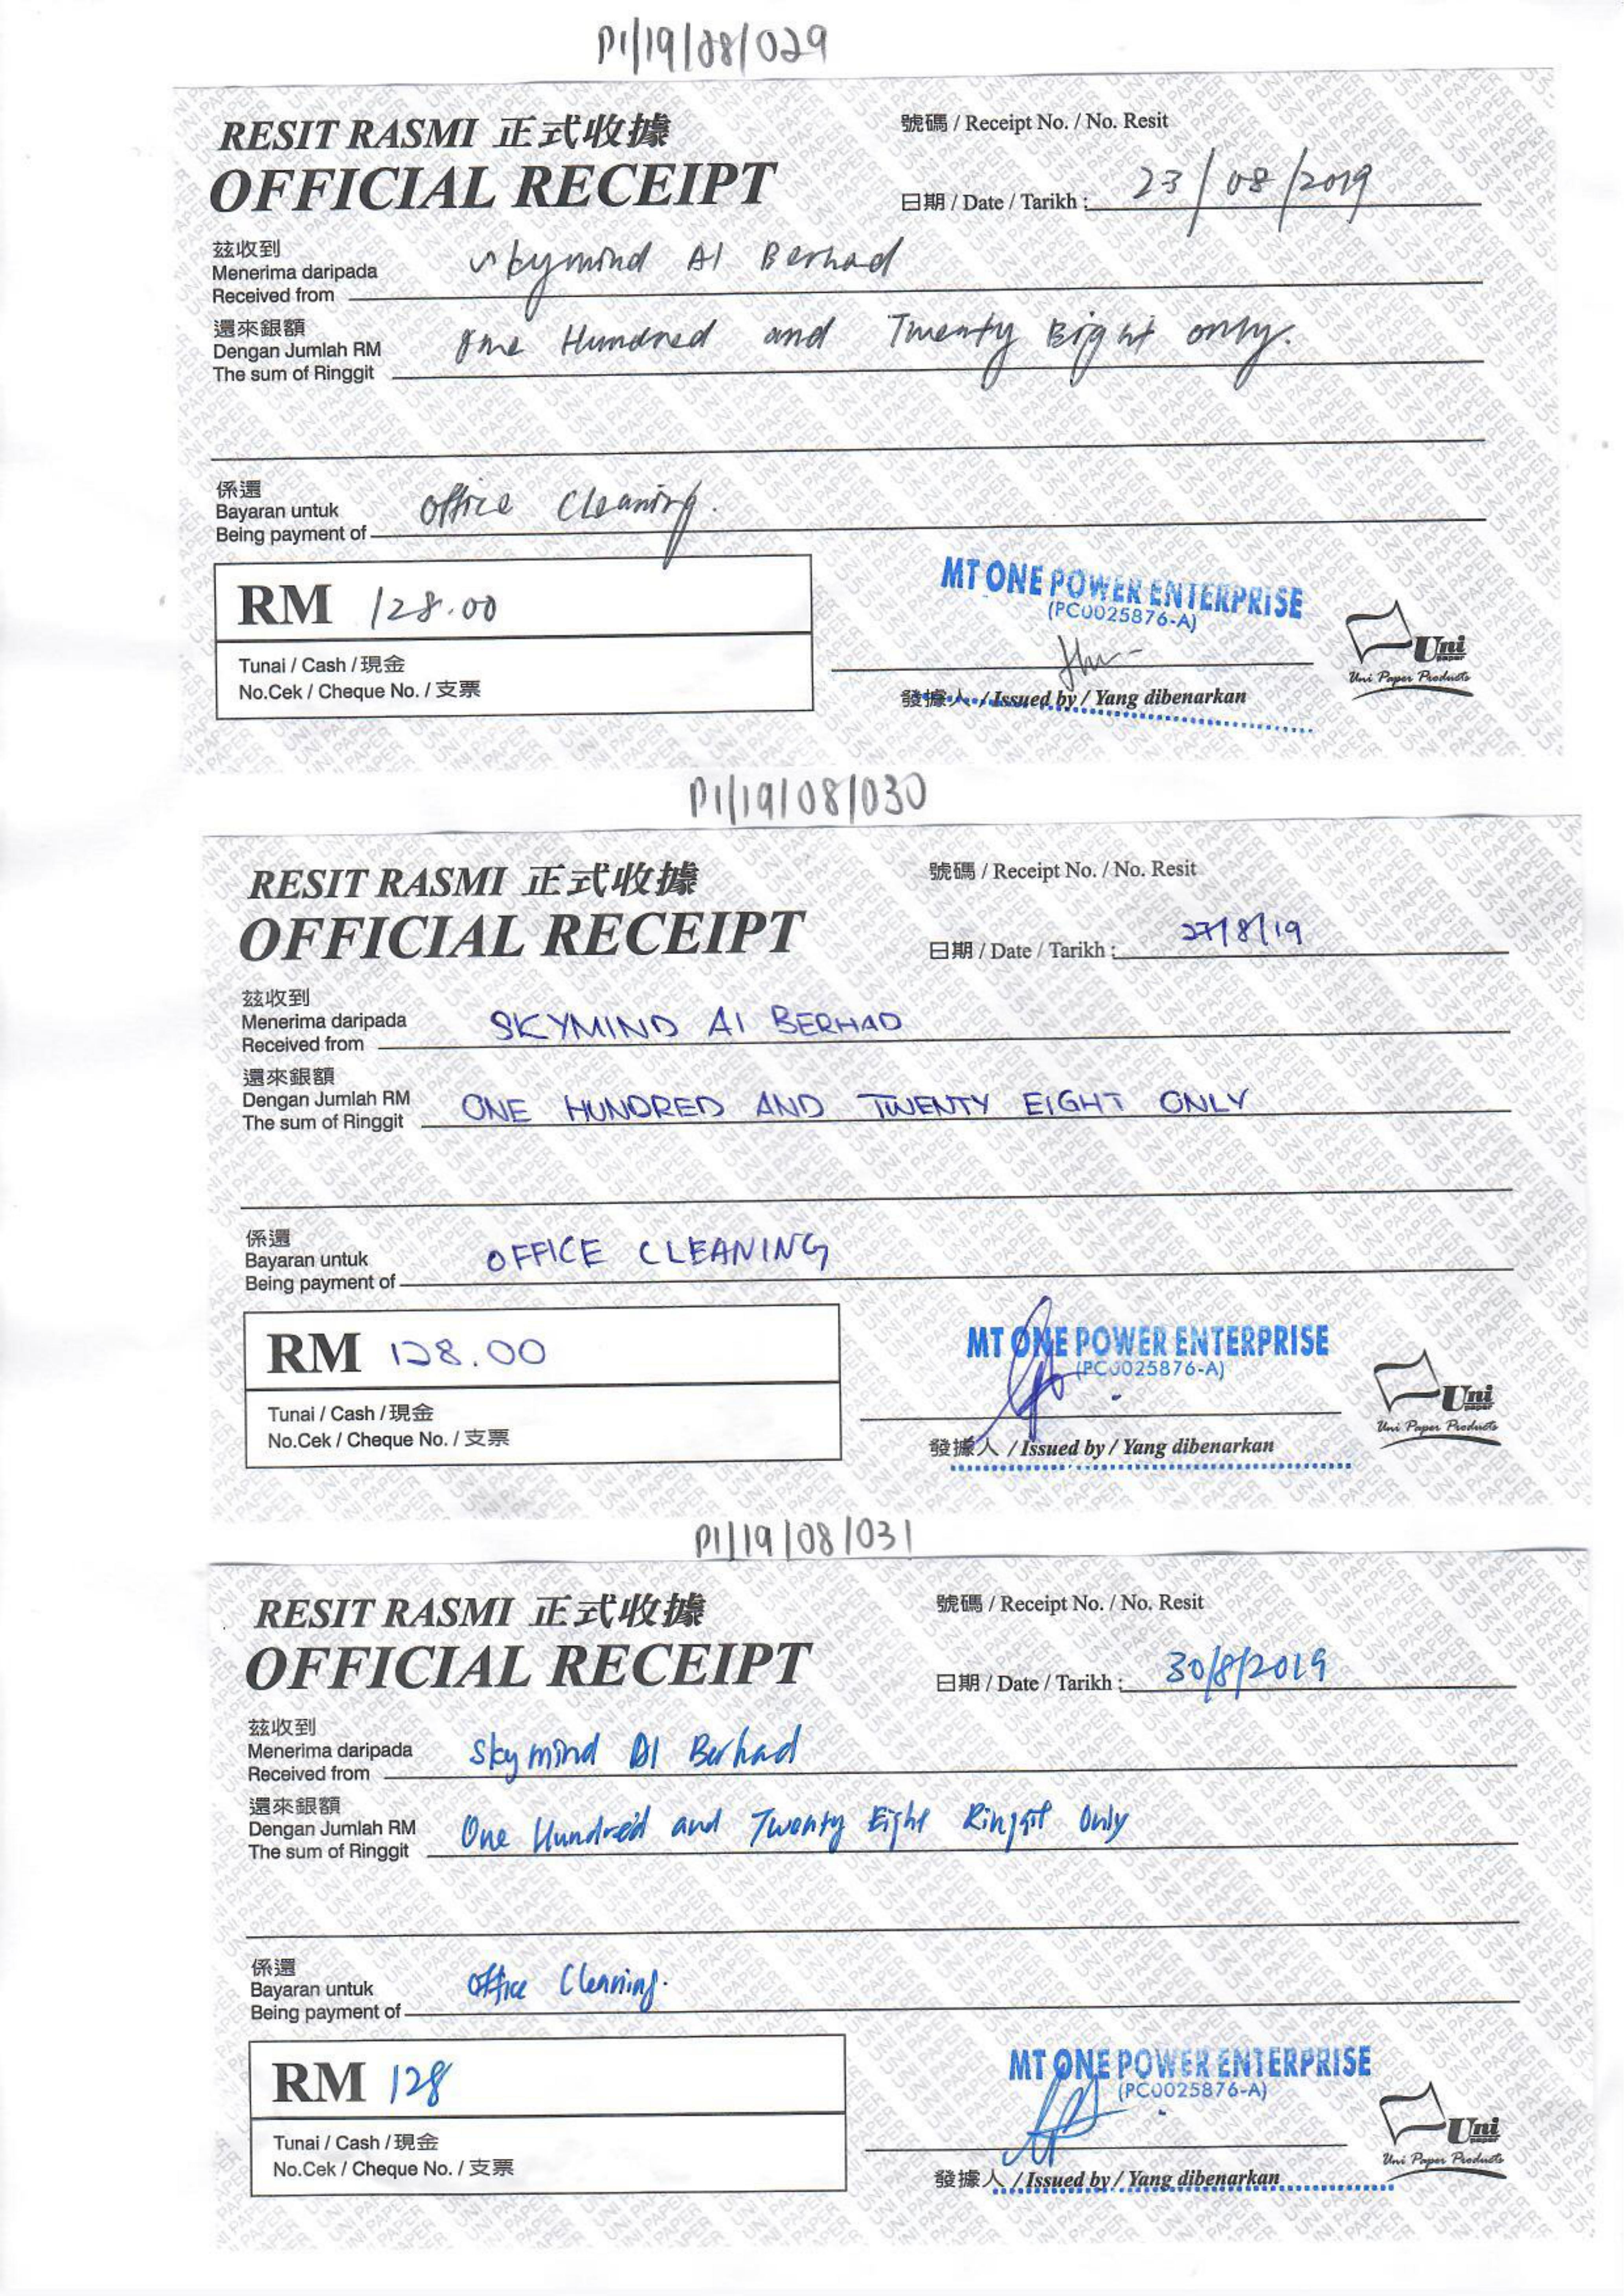 PI/19/08/029
RESIT RASMI 正式收據
OFFICIAL RECEIPT
號碼 / Receipt No. / No. Resit
日期 / Date / Tarikh : 23/08/2019
茲收到
Menerima daripada
Received from Skymind AI Berhad
還來銀額
Dengan Jumlah RM
The sum of Ringgit One Hundred and Twenty Eight only.
係還
Bayaran untuk
Being payment of Office Cleaning.
RM 128.00
Tunai / Cash / 現金
No.Cek / Cheque No. / 支票
MT ONE POWER ENTERPRISE
(PC0025876-A)
發據人 / Issued by / Yang dibenarkan
Uni
paper
Uni Paper Products
PI/19/08/030
RESIT RASMI 正式收據
OFFICIAL RECEIPT
號碼 / Receipt No. / No. Resit
日期 / Date / Tarikh : 27/8/19
茲收到
Menerima daripada
Received from SKYMIND AI BERHAD
還來銀額
Dengan Jumlah RM
The sum of Ringgit ONE HUNDRED AND TWENTY EIGHT ONLY
係還
Bayaran untuk
Being payment of OFFICE CLEANING
RM 128.00
Tunai / Cash / 現金
No.Cek / Cheque No. / 支票
MT ONE POWER ENTERPRISE
(PC0025876-A)
發據人 / Issued by / Yang dibenarkan
Uni
paper
Uni Paper Products
PI/19/08/031
RESIT RASMI 正式收據
OFFICIAL RECEIPT
號碼 / Receipt No. / No. Resit
日期 / Date / Tarikh : 30/8/2019
茲收到
Menerima daripada
Received from Skymind AI Berhad
還來銀額
Dengan Jumlah RM
The sum of Ringgit One Hundred and Twenty Eight Ringgit Only
係還
Bayaran untuk
Being payment of Office Cleaning.
RM 128
Tunai / Cash / 現金
No.Cek / Cheque No. / 支票
MT ONE POWER ENTERPRISE
(PC0025876-A)
發據人 / Issued by / Yang dibenarkan
Uni
paper
Uni Paper Products